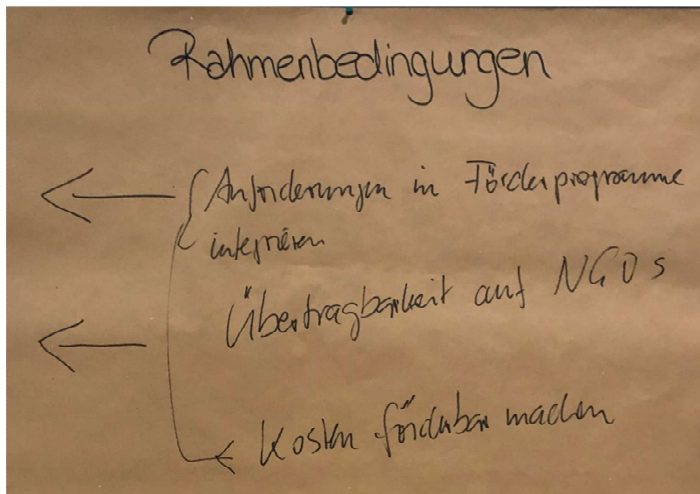 Rahmenbedingungen
Anforderungen in Förderprogramme
integrieren
Übertragbarkeit auf NGOs
Kosten förderbar machen